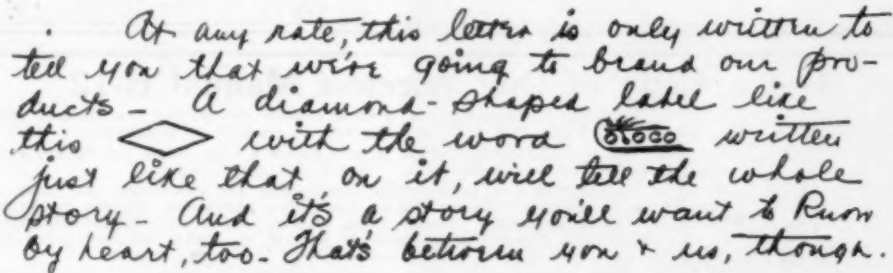 At any rate, this letter is only written to
tell you that we're going to brand our pro-
ducts - A diamond-shaped label like
this with the word written
just like that, on it, will tell the whole
story - And it's a story you'll want to know
by heart, too. That's between you & us, though.